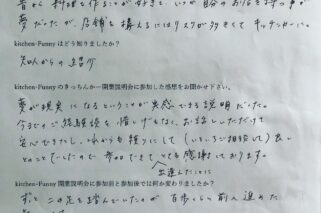 昔から料理を作ることが好きで、いつか自分のお店を持つ事が
夢だったが、店舗を構えるにはリスクが多きくてキッチンカーに。
kitchen-Funny はどう知りましたか？
知人からの紹介
kitchen-Funny のきっちんかー開業説明会に参加した感想をお聞かせ下さい。
夢が現実になるということが実感できる説明だった。
今までのご経験談を惜しげもなく、お話しいただけて
安心できたし、これからも頼りにして（いろいろご相談して）良い
とのことでしたので参加できてとても感謝しております。
出逢えたことに
kitchen-Funny 開業説明会に参加前と参加後では何か変わりましたか？
ずっと二の足を踏んでいたが百歩くらい前へ進めた